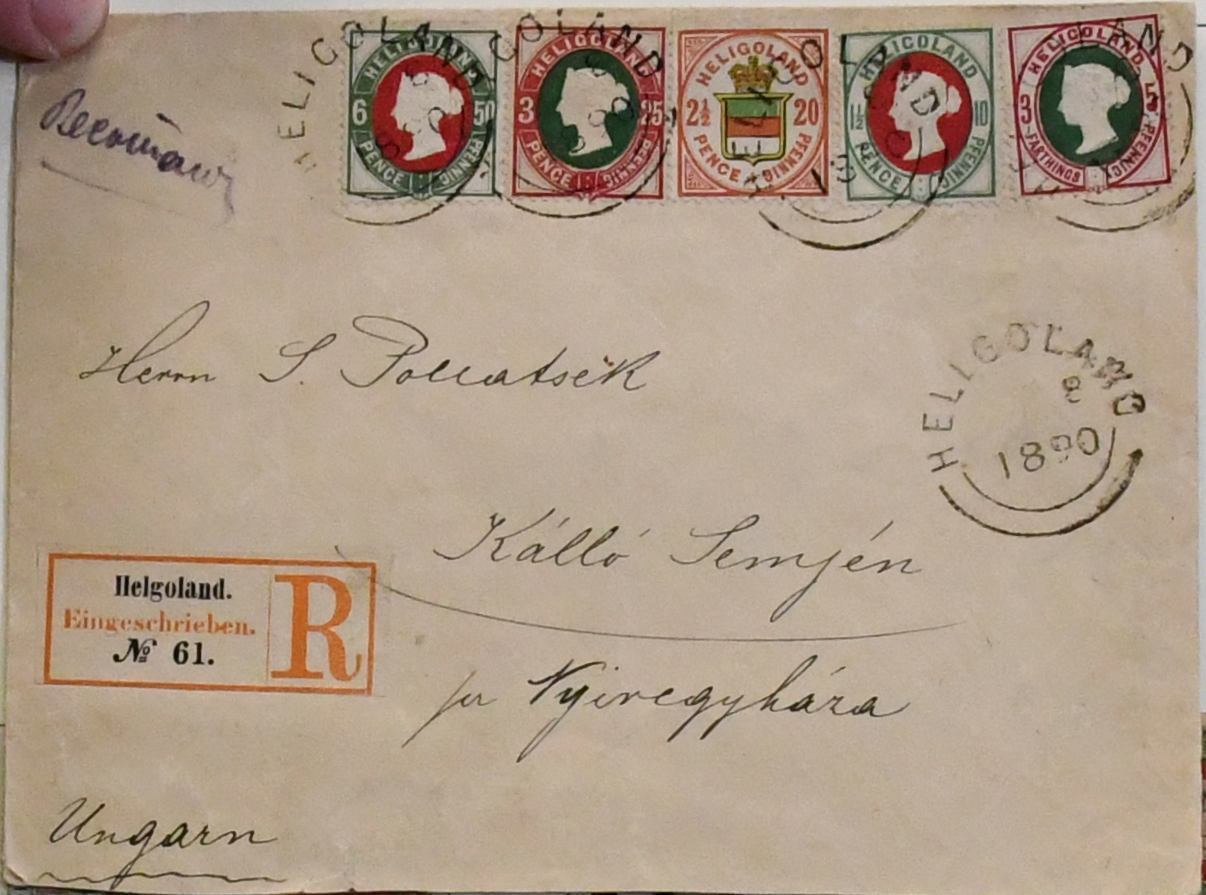 HELIGOLAND
6 50
PENCE PFENNIG
HELIGOLAND
3 25
PENCE PFENNIG
HELIGOLAND
2½ 20
PENCE PFENNIG
HELIGOLAND
1½ 10
PENCE PFENNIG
HELIGOLAND
3 5
FARTHINGS PFENNIG
HELIGOLAND
1890
Herrn S. Pollatsek
Kálló Semjén
Helgoland.
Eingeschrieben.
№ 61.
R
pr Nyiregyháza
Ungarn